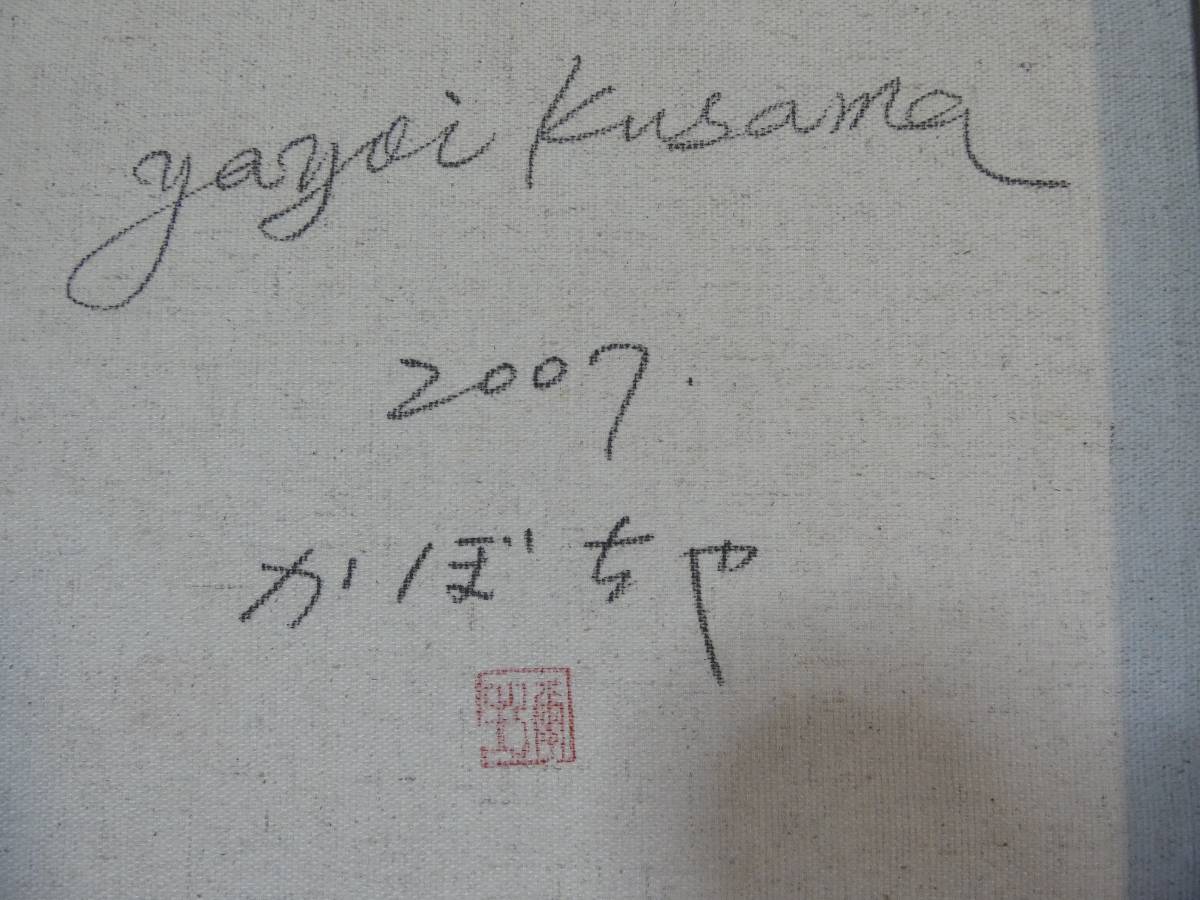 yayoi Kusama
2007.
かぼちゃ